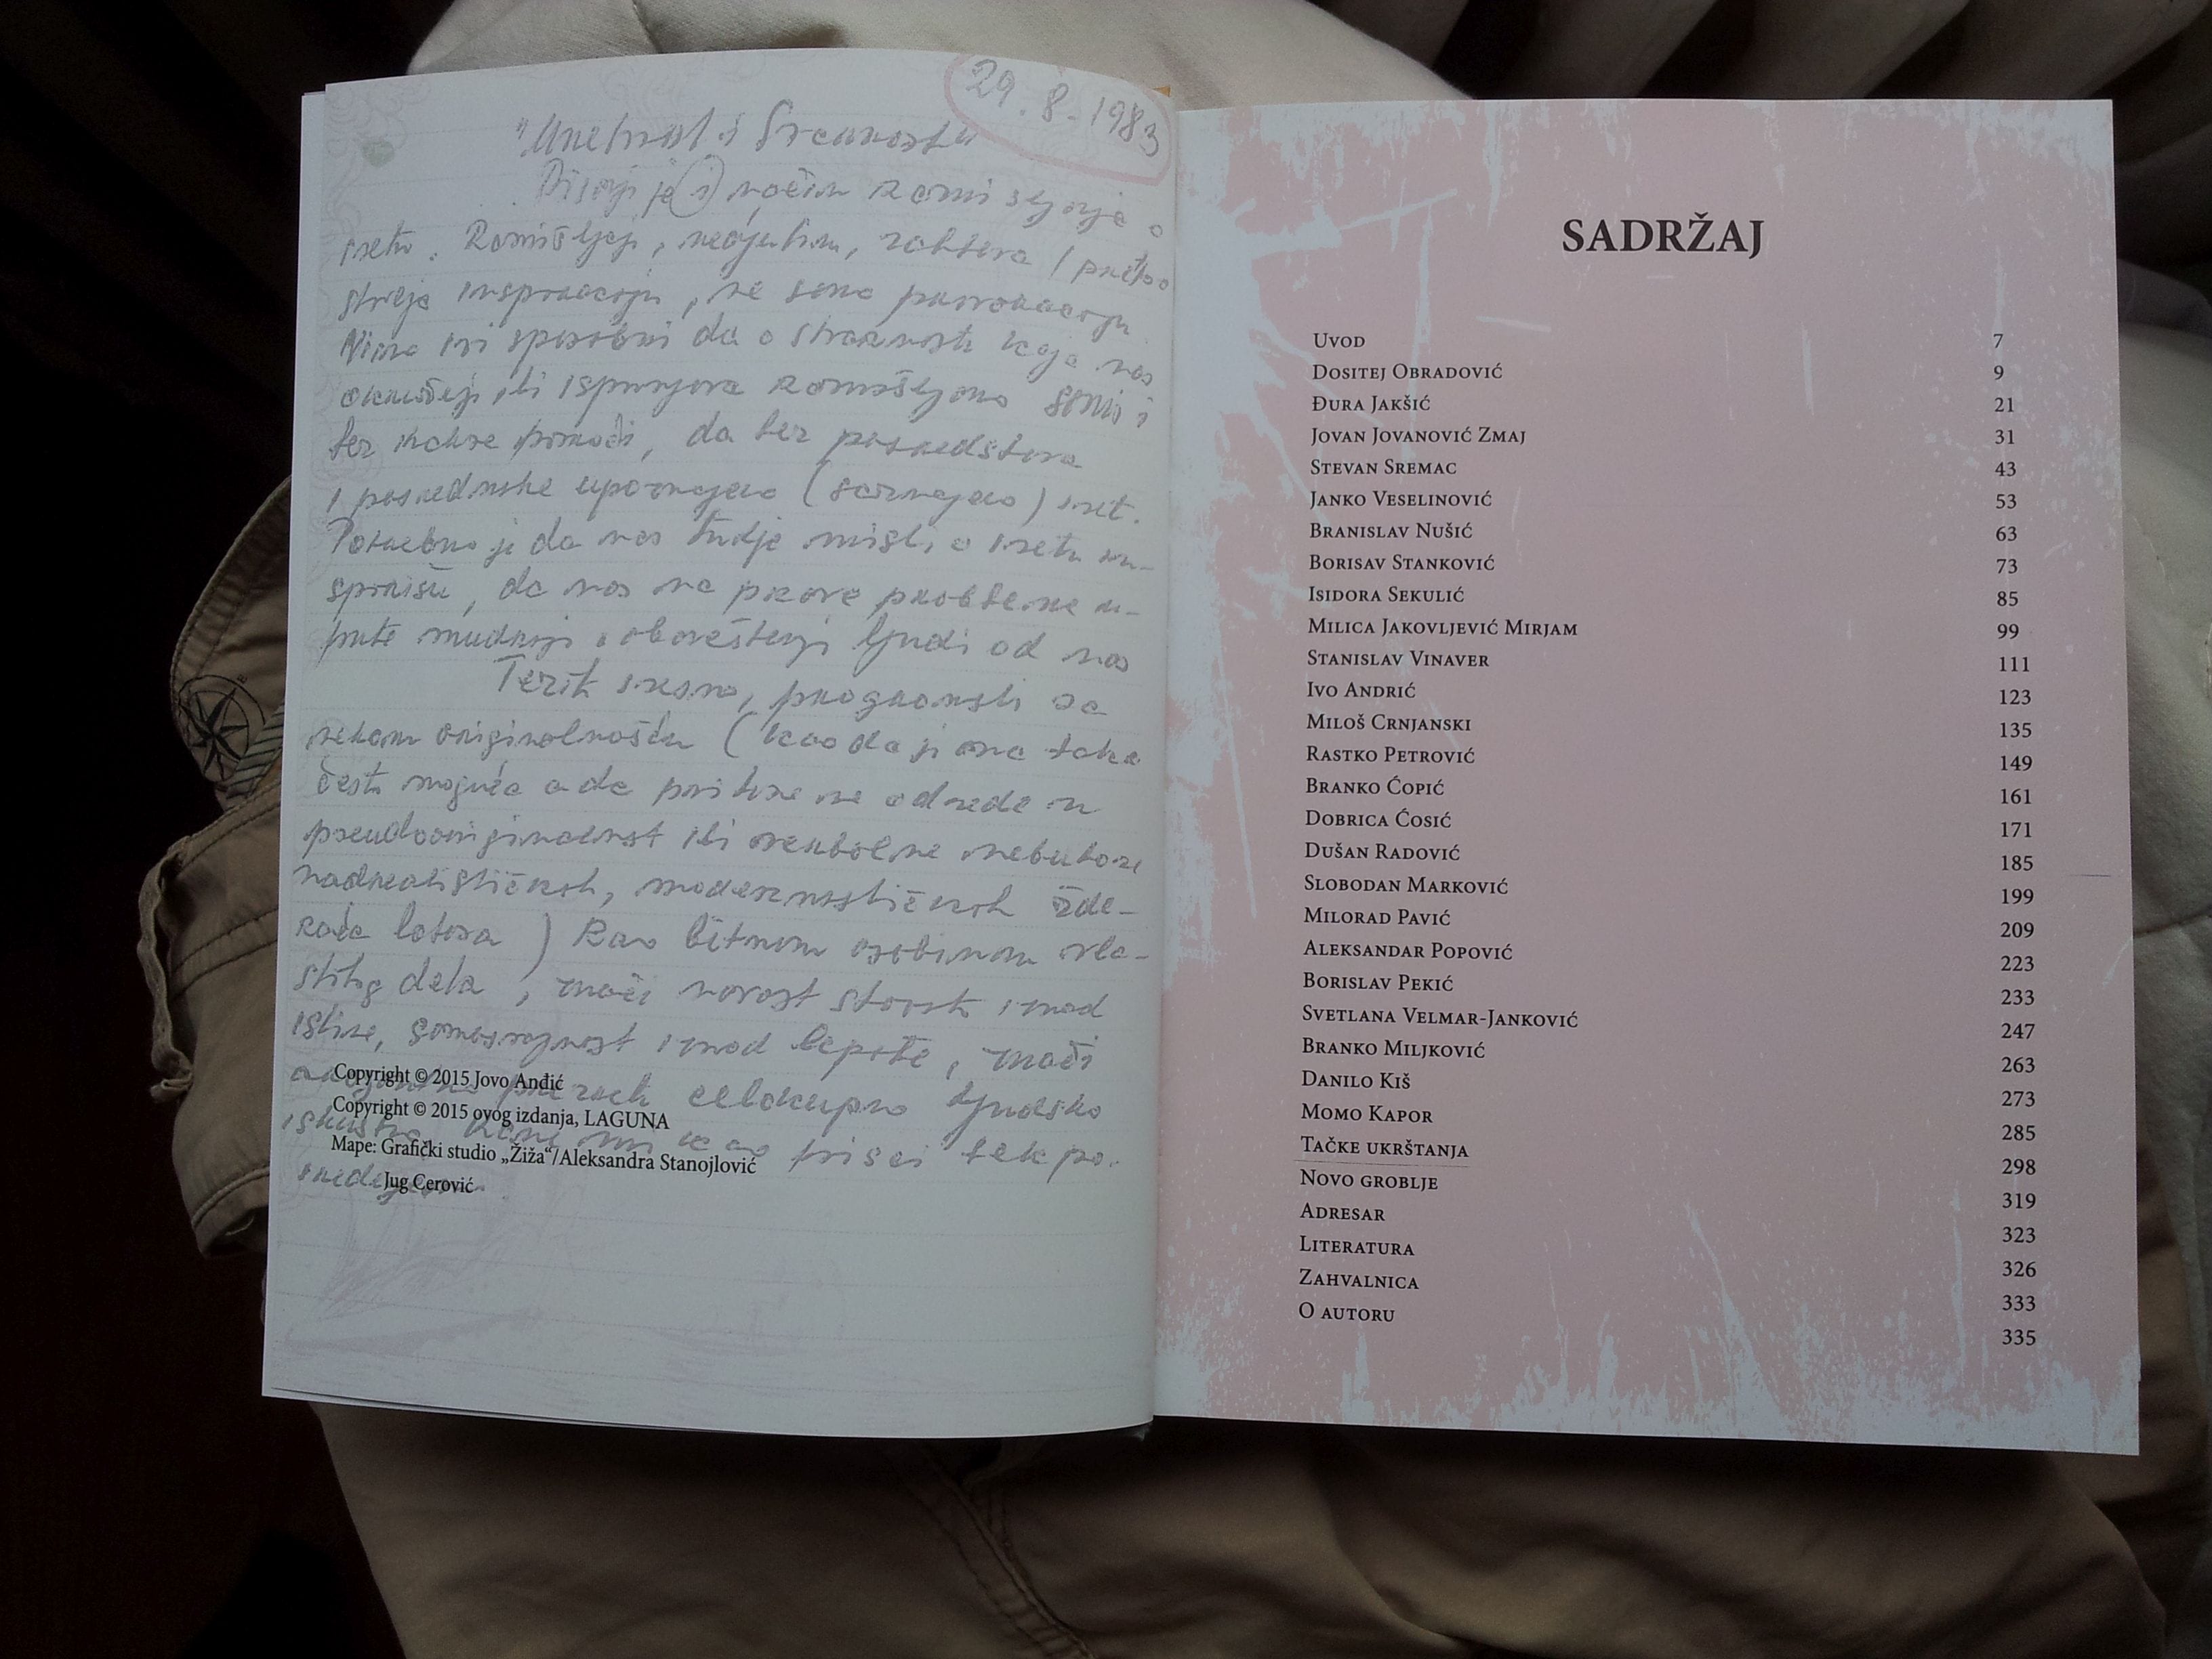 29.8.1983
"Umetnost i Stvarnost"
Pisanje je i način razmišljanja o
svetu. Razmišljanje, međutim, zahteva
inspiraciju, ne samo provokaciju
Nismo svi sposobni da o stvarnosti koja nas
okružuje ili ispunjava razmišljamo sami i
bez ikakve pomoći, da bez posredstva
i posrednika upoznajemo (saznajemo) svet.
Potrebno je da nas tuđe misli o svetu in-
spirišu, da nas na prave probleme u-
pute mudriji i obavešteniji ljudi od nas
Težiti svesno, programski za
nekom originalnošću (kao da je ona tako
često moguća a da pri tome ne odvede u
pseudooriginalnost ili verbalne nebuloze
nadrealističkih, modernističkih žde-
rača lotosa) kao bitnom osobinom vla-
stitog dela, znači novost staviti iznad
istine, samosvojnost iznad lepote, znači
prezreti celokupno ljudsko
iskustvo kao pisci tek po-
Copyright © 2015 Jovo Anđić
Copyright © 2015 ovog izdanja, LAGUNA
Mape: Grafički studio „Žiža“/Aleksandra Stanojlović
Jug Cerović
SADRŽAJ
Uvod 7
Dositej Obradović 9
Đura Jakšić 21
Jovan Jovanović Zmaj 31
Stevan Sremac 43
Janko Veselinović 53
Branislav Nušić 63
Borisav Stanković 73
Isidora Sekulić 85
Milica Jakovljević Mirjam 99
Stanislav Vinaver 111
Ivo Andrić 123
Miloš Crnjanski 135
Rastko Petrović 149
Branko Ćopić 161
Dobrica Ćosić 171
Dušan Radović 185
Slobodan Marković 199
Milorad Pavić 209
Aleksandar Popović 223
Borislav Pekić 233
Svetlana Velmar-Janković 247
Branko Miljković 263
Danilo Kiš 273
Momo Kapor 285
Tačke ukrštanja 298
Novo groblje 319
Adresar 323
Literatura 326
Zahvalnica 333
O autoru 335